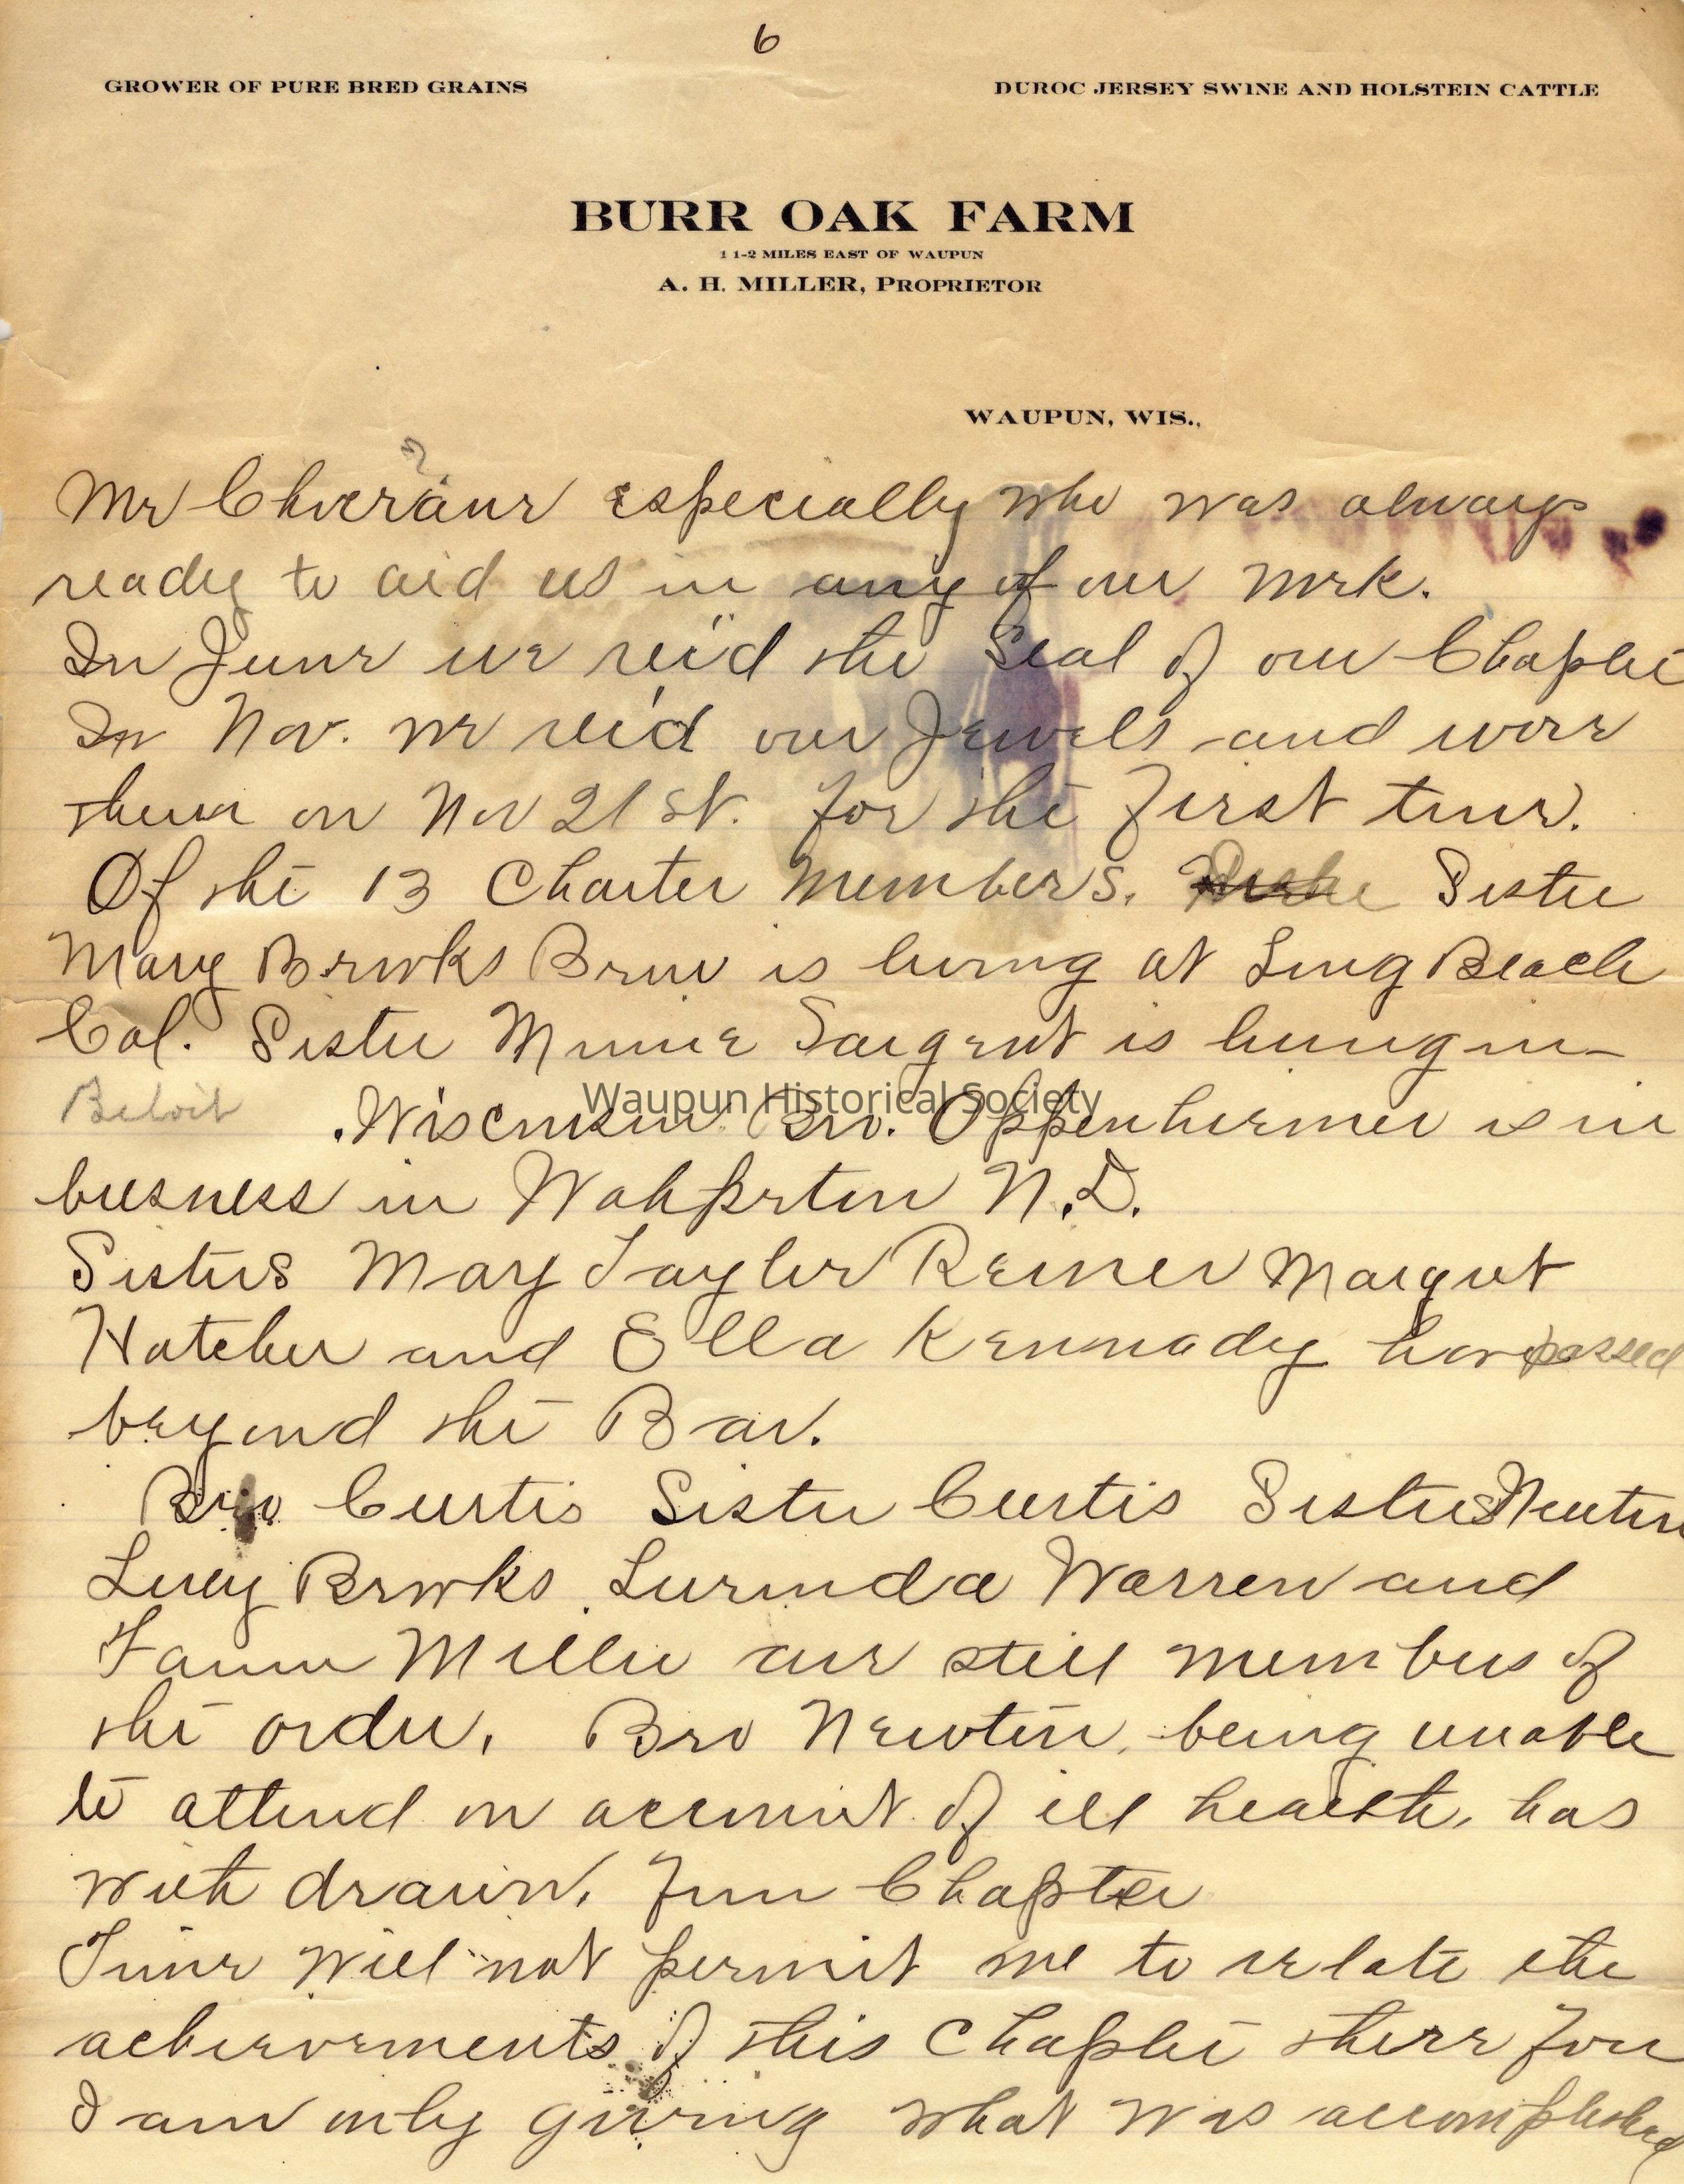 6
GROWER OF PURE BRED GRAINS
DUROC JERSEY SWINE AND HOLSTEIN CATTLE
BURR OAK FARM
1 1-2 MILES EAST OF WAUPUN
A. H. MILLER, PROPRIETOR
WAUPUN, WIS.,
?
Mr especially who was always
ready to aid us in any of our work.
In June we rec'd the Seal of our Chapter
In Nov. we rec'd our Jewels and wore
them on Nov 21 st. for the first time.
Of the 13 Charter Members. Sister
Mary Brooks Brow is living at Long Beach
Cal. Sister Minnie Sargent is living in
Beloit .Wisconsin. Bro. Oppenheimer is in
busness in Wahpeton N.D.
Sisters Mary Taylor Reiner Margret
Hatcher and Ella Kennady have passed
beyond the Bar.
Bro Curtis Sister Curtis Sisters Newton
Lucy Brooks Lurinda Warren and
Fannie Miller are still members of
the order. Bro Newton, being unable
to attend on account of ill health, has
with drawn. from Chapter
Time will not permit me to relate the
achievements of this Chapter there fore
I am only giving what was accomplished
Waupun Historical Society